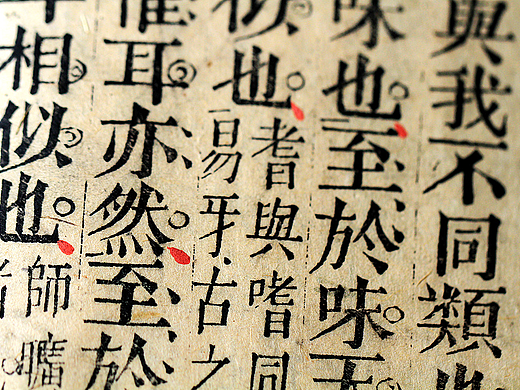 與我不同類也
味也。至於味。天
似也。
耆與嗜同
易牙古之
惟耳。亦然。至於
耳相似也。
師曠